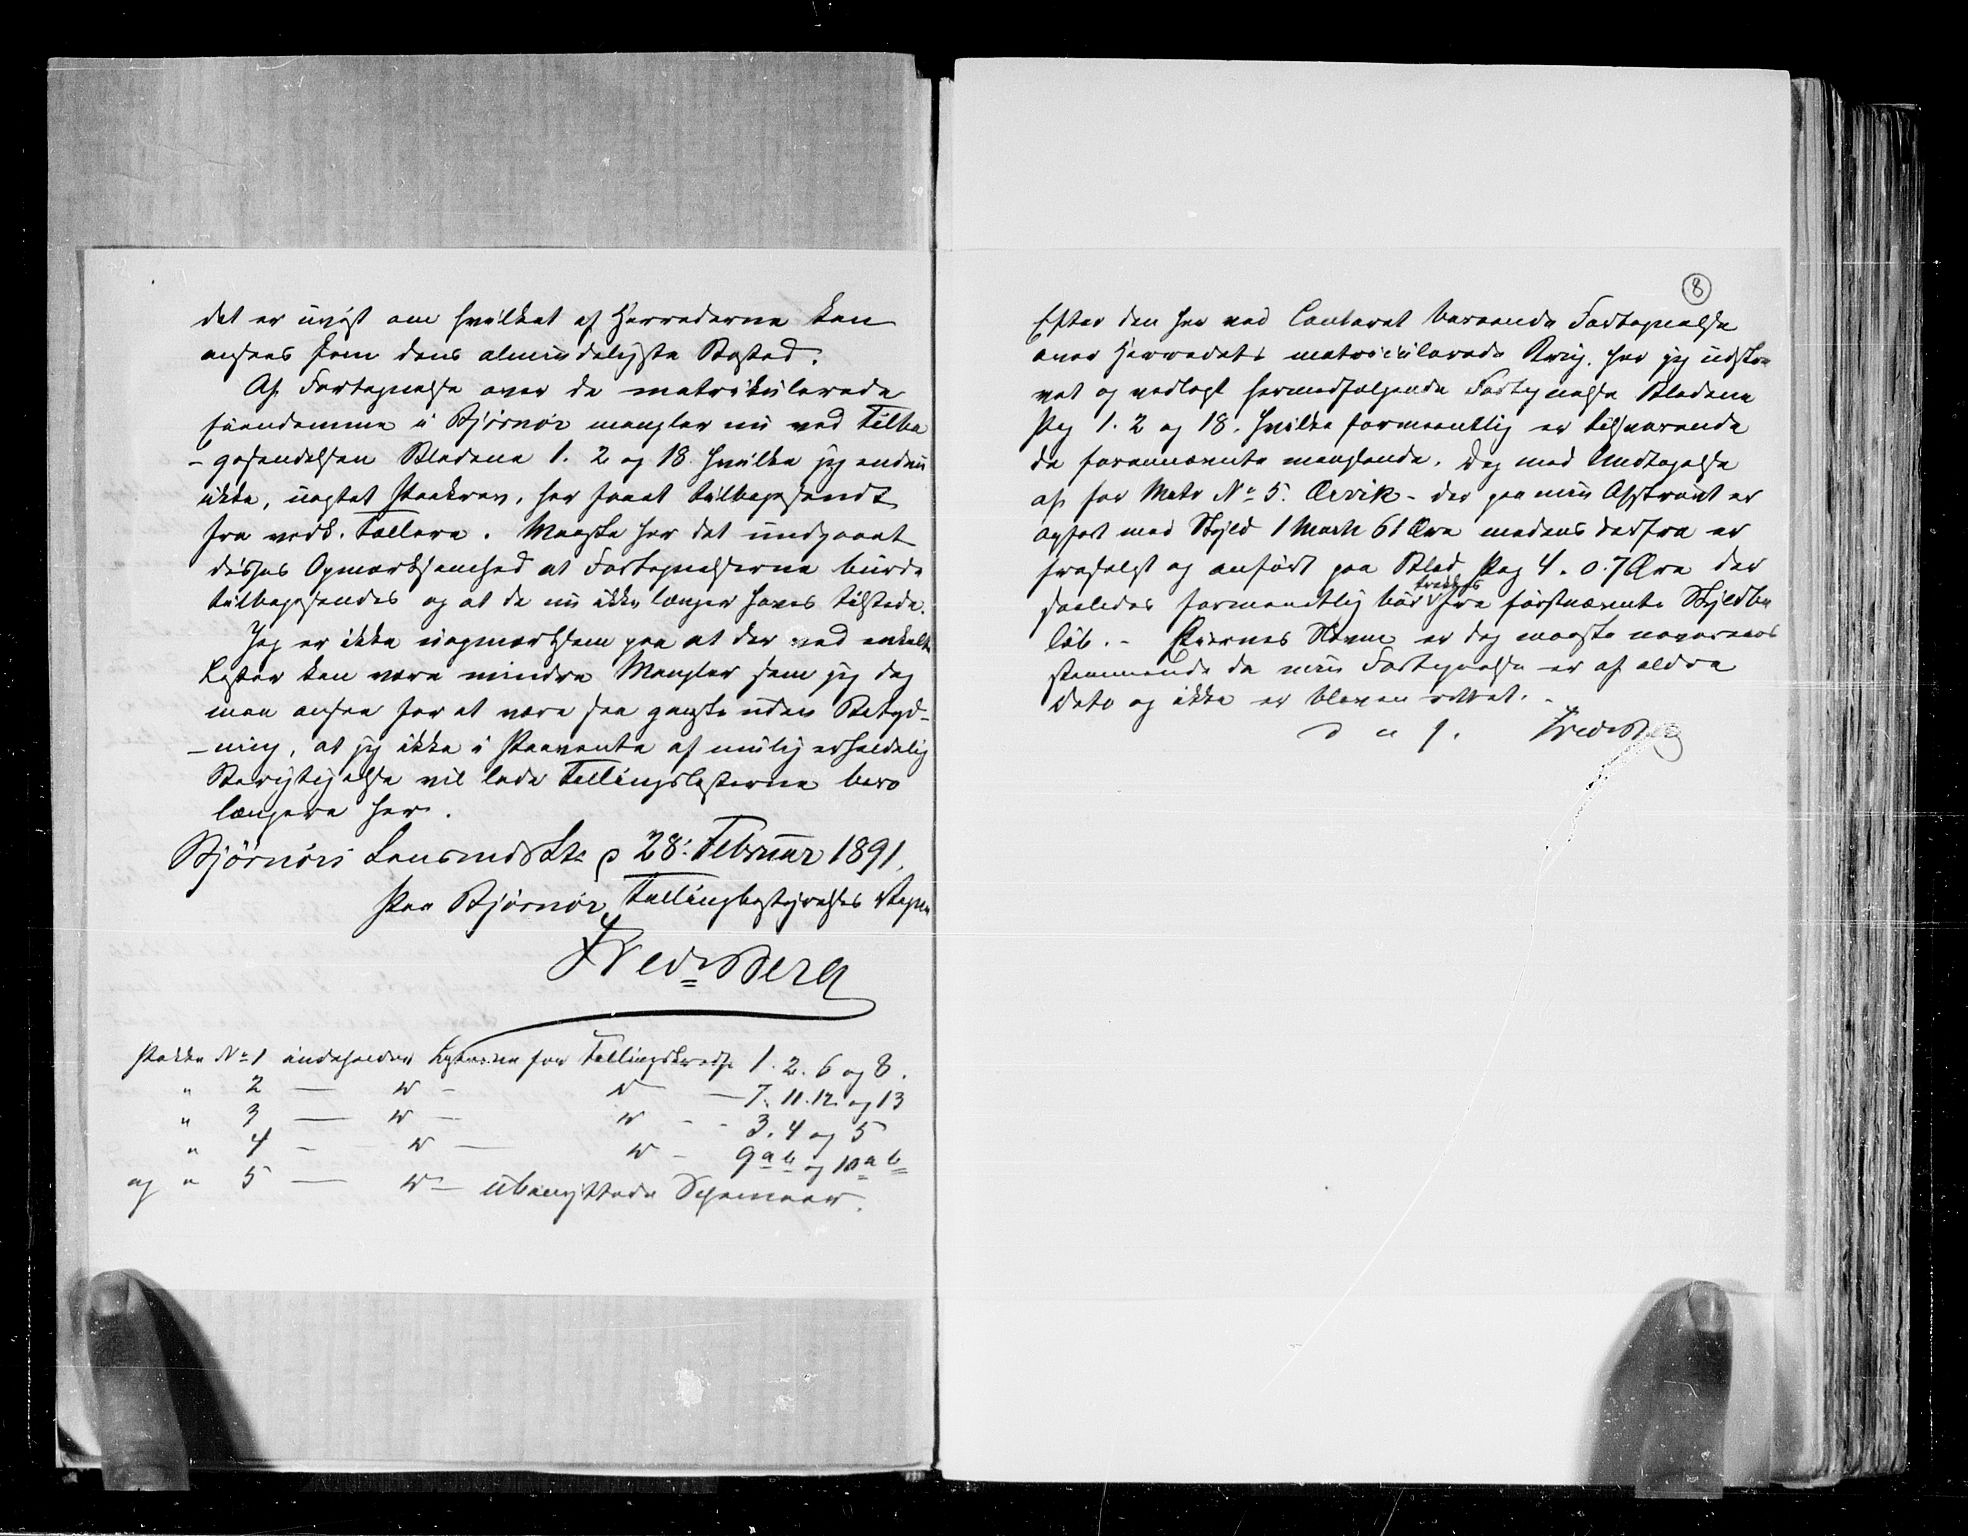 det er uvist om hvilket af Herrederne kan
ansees som dens almindeligste Bosted.
Af Fortegnelse over de matrikulerede
Eiendomme i Bjørnør mangler nu ved Tilba
- gesendelsen Bladene 1. 2 og 18 hvilke jeg endnu
ikke, uagtet Paakrav, har faaet tilbagesendt
fra vedk. Tællere. Maaske har det undgaaet
disses Opmærksomhed at Fortegnelserne burde
tilbagesendes og at de nu ikke længer haves tilstede.
Jeg er ikke uopmærksom paa at der ved enkelte
Lister kan være mindre Mangler som jeg dog
maa ansee for at være saa ganske uden Betyd-
-ning, at jeg ikke i Paavente af mulig erholdelig
Berigtigelse vil lade Tellingslisterne bero
længere her.
Bjørnørs Lensmd 28. Februar 1891.
Paa Bjørnør Tællingbestyrelses Vegne
Fred. Berg
Pakke No 1 indeholder Listerne for Tellingskreds 1. 2. 6 og 8.
" 2 — " — " — 7. 11. 12 og 13
" 3 — " — " - - 3. 4 og 5
" 4 - " — " - 9 a b og 10 a b
og " 5 — " — ubenyttede Schemaer.
8
Efter den her ved Contoret beroende Fortegnelse
over Herredets matrikulerede Brug. har jeg udskre-
vet og vedlagt hermedfølgende Fortegnelse Bladene
Pag 1. 2 og 18. hvilke formeentlig er tilsvarende
de forannævnte manglende. Dog med Undtagelse
af for Matr No 5. Ørvik - der paa min Afskrivt er
opført med Skyld 1 Mark 61 Øre medens derfra er
frasolgt og anført paa Blad Pag 4. 0.7 Øre der
saaledes formeentlig bør trækkes fra førstnævnte Skyldbe
løb. - Eiernes Navne er dog maaske
stemmende da min Fortegnelse er af ældre
Dato og ikke er bleven rettet. -
D. u. S. Fred. Berg